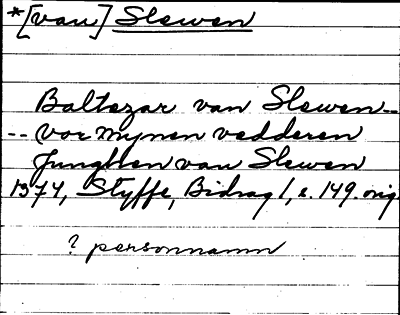 *[van] Slewen
Baltazar van Slewen--
-- vor mynen vedderen
Junghen van Slewen
1374, Styffe, Bidrag I, s. 149. orig.
? personnamn